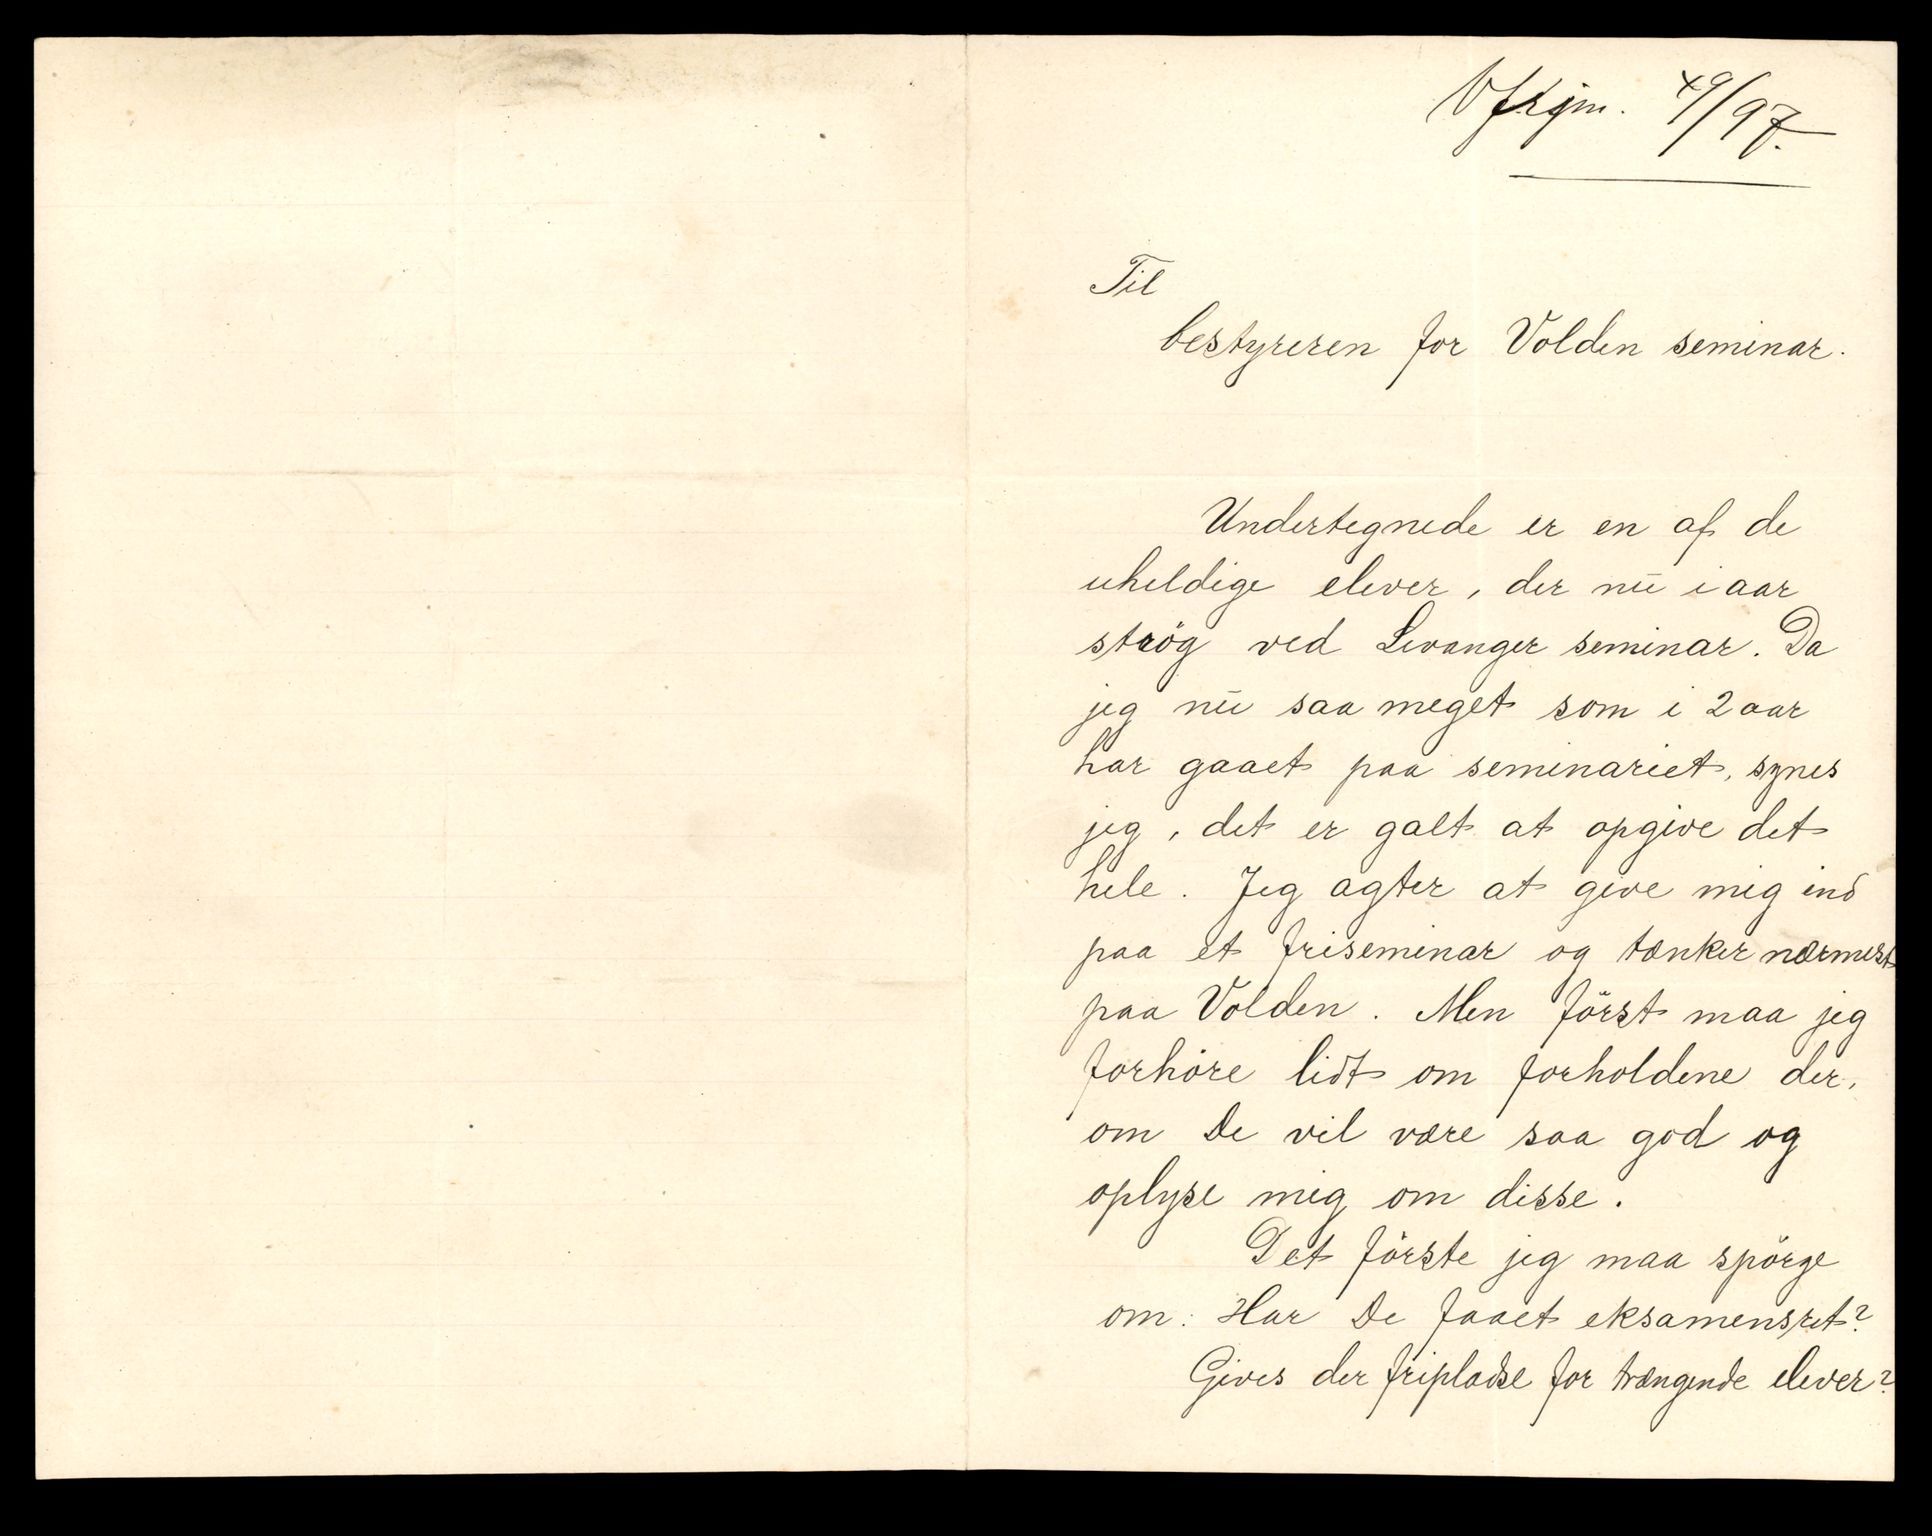 Vfkjm. 49/97.
Til
bestyreren for Volden seminar.
Undertegnede er en af de
uheldige elever, der nu i aar
strög ved Levanger seminar. Da
jeg nu saa meget som i 2 aar
har gaaet paa seminariet, synes
jeg, det er galt at opgive det
hele. Jeg agter at give mig ind
paa et friseminar og tænker nærmest
paa Volden. Men först maa jeg
forhöre lidt om forholdene der,
om De vil være saa god og
oplyse mig om disse.
Det förste jeg maa spörge
om: Har De faaet eksamensret?
Gives der fripladse for trængende elever?